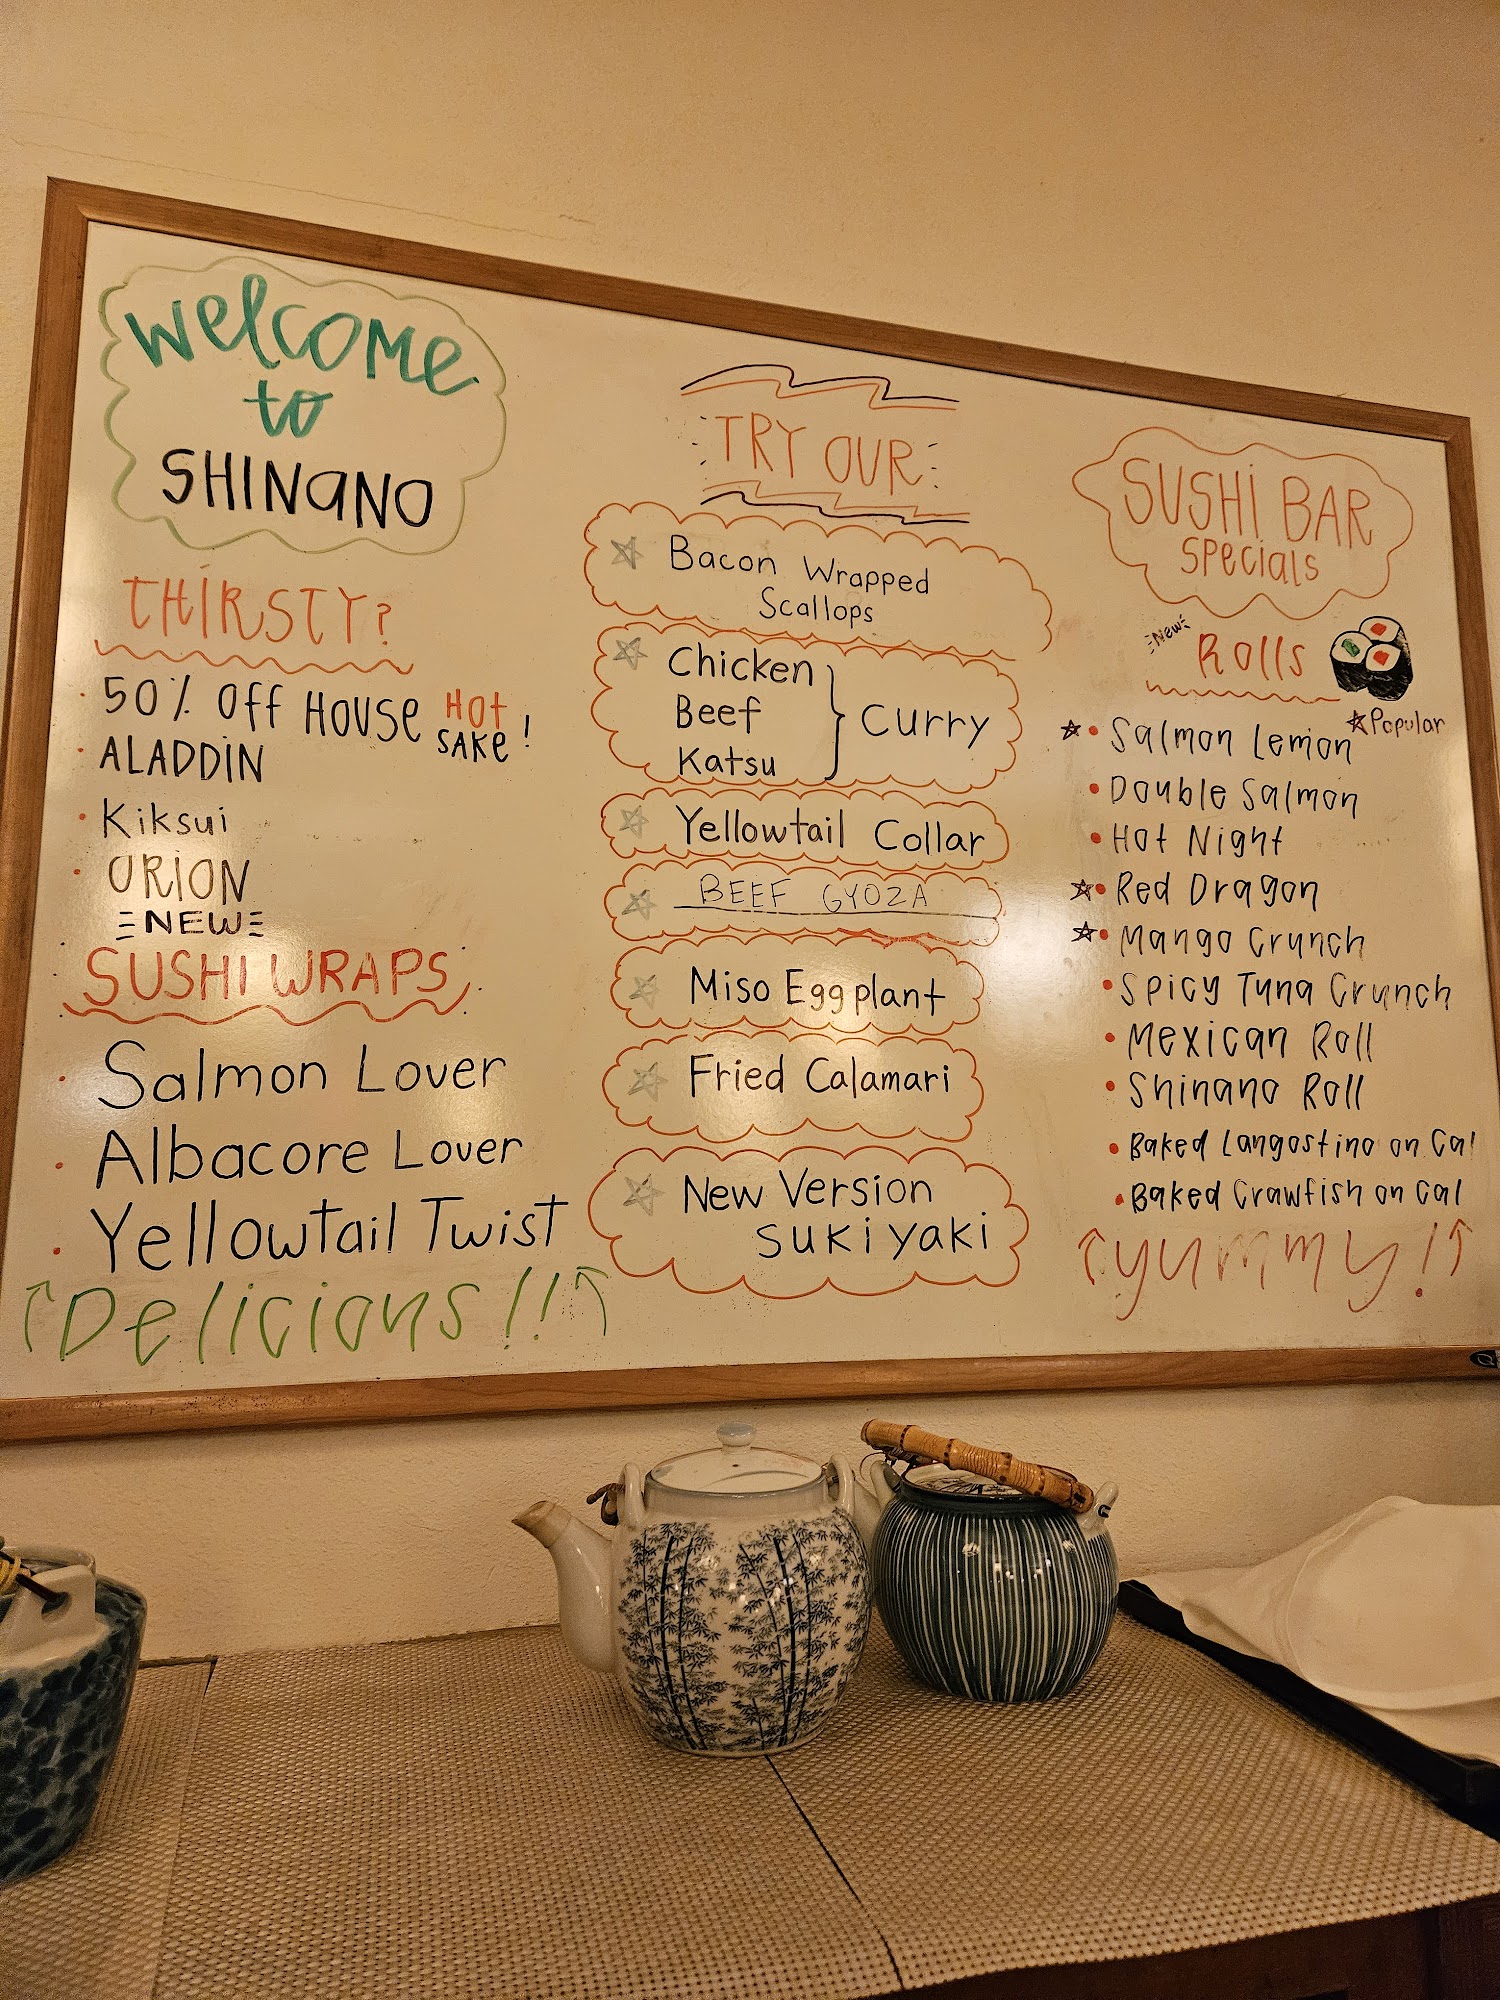 Welcome
to
SHINANO
THIRSTY?
50% Off HOUSE HOT SAKE!
ALADDIN
Kiksui
ORION
NEW
SUSHI WRAPS
Salmon Lover
Albacore Lover
Yellowtail Twist
Delicious!!
TRY OUR
Bacon Wrapped
Scallops
Chicken
Beef
Katsu
Curry
Yellowtail Collar
BEEF GYOZA
Miso Eggplant
Fried Calamari
New Version
SUKIYAKI
SUSHI BAR
Specials
New
Rolls
Popular
Salmon Lemon
Double Salmon
Hot Night
Red Dragon
Mango Crunch
Spicy Tuna Crunch
Mexican Roll
Shinano Roll
Baked Langostino on Cal
Baked Crawfish on Cal
yummy!